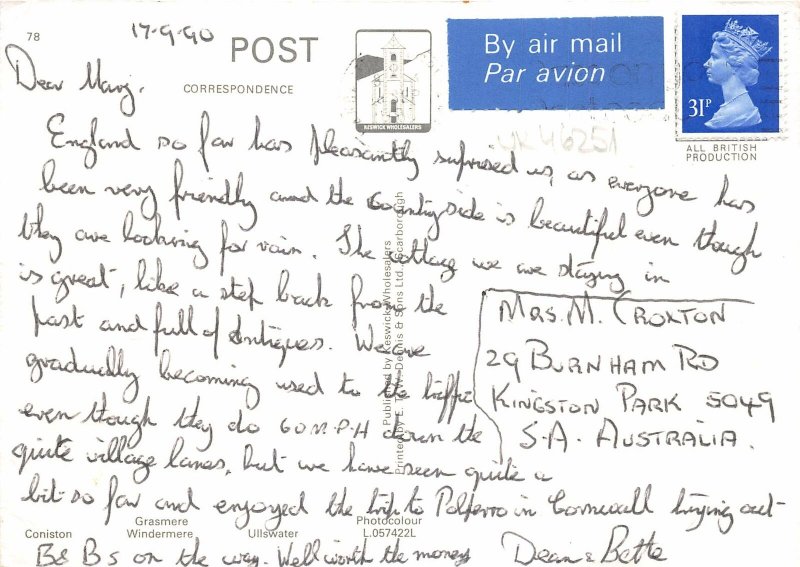 17-9-90
78
POST
CORRESPONDENCE
KESWICK WHOLESALERS
By air mail
Par avion
31P
ALL BRITISH
PRODUCTION
UK46251
Dear Marj.
England so far has pleasantly suprised us, as everyone has
been very friendly and the Countryside is beautiful even though
they are looking for rain. The cottage we are staying in
is great, like a step back from the
past and full of Antiques. We are
gradually becoming used to the traffic
even though they do 60 M.P.H down the
quite village lanes, but we have seen quite a
bit so far and enjoyed the trip to Polperro in Cornwall trying out
B & B s on the way. Well worth the money
Dean & Bette
MRS. M. CROXTON
29 BURNHAM RD
KINGSTON PARK 5049
S.A. AUSTRALIA.
Published by Keswick Wholesalers
Printed by E. T. W. Dennis & Sons Ltd., Scarborough
Coniston
Grasmere
Windermere
Ullswater
Photocolour
L.057422L